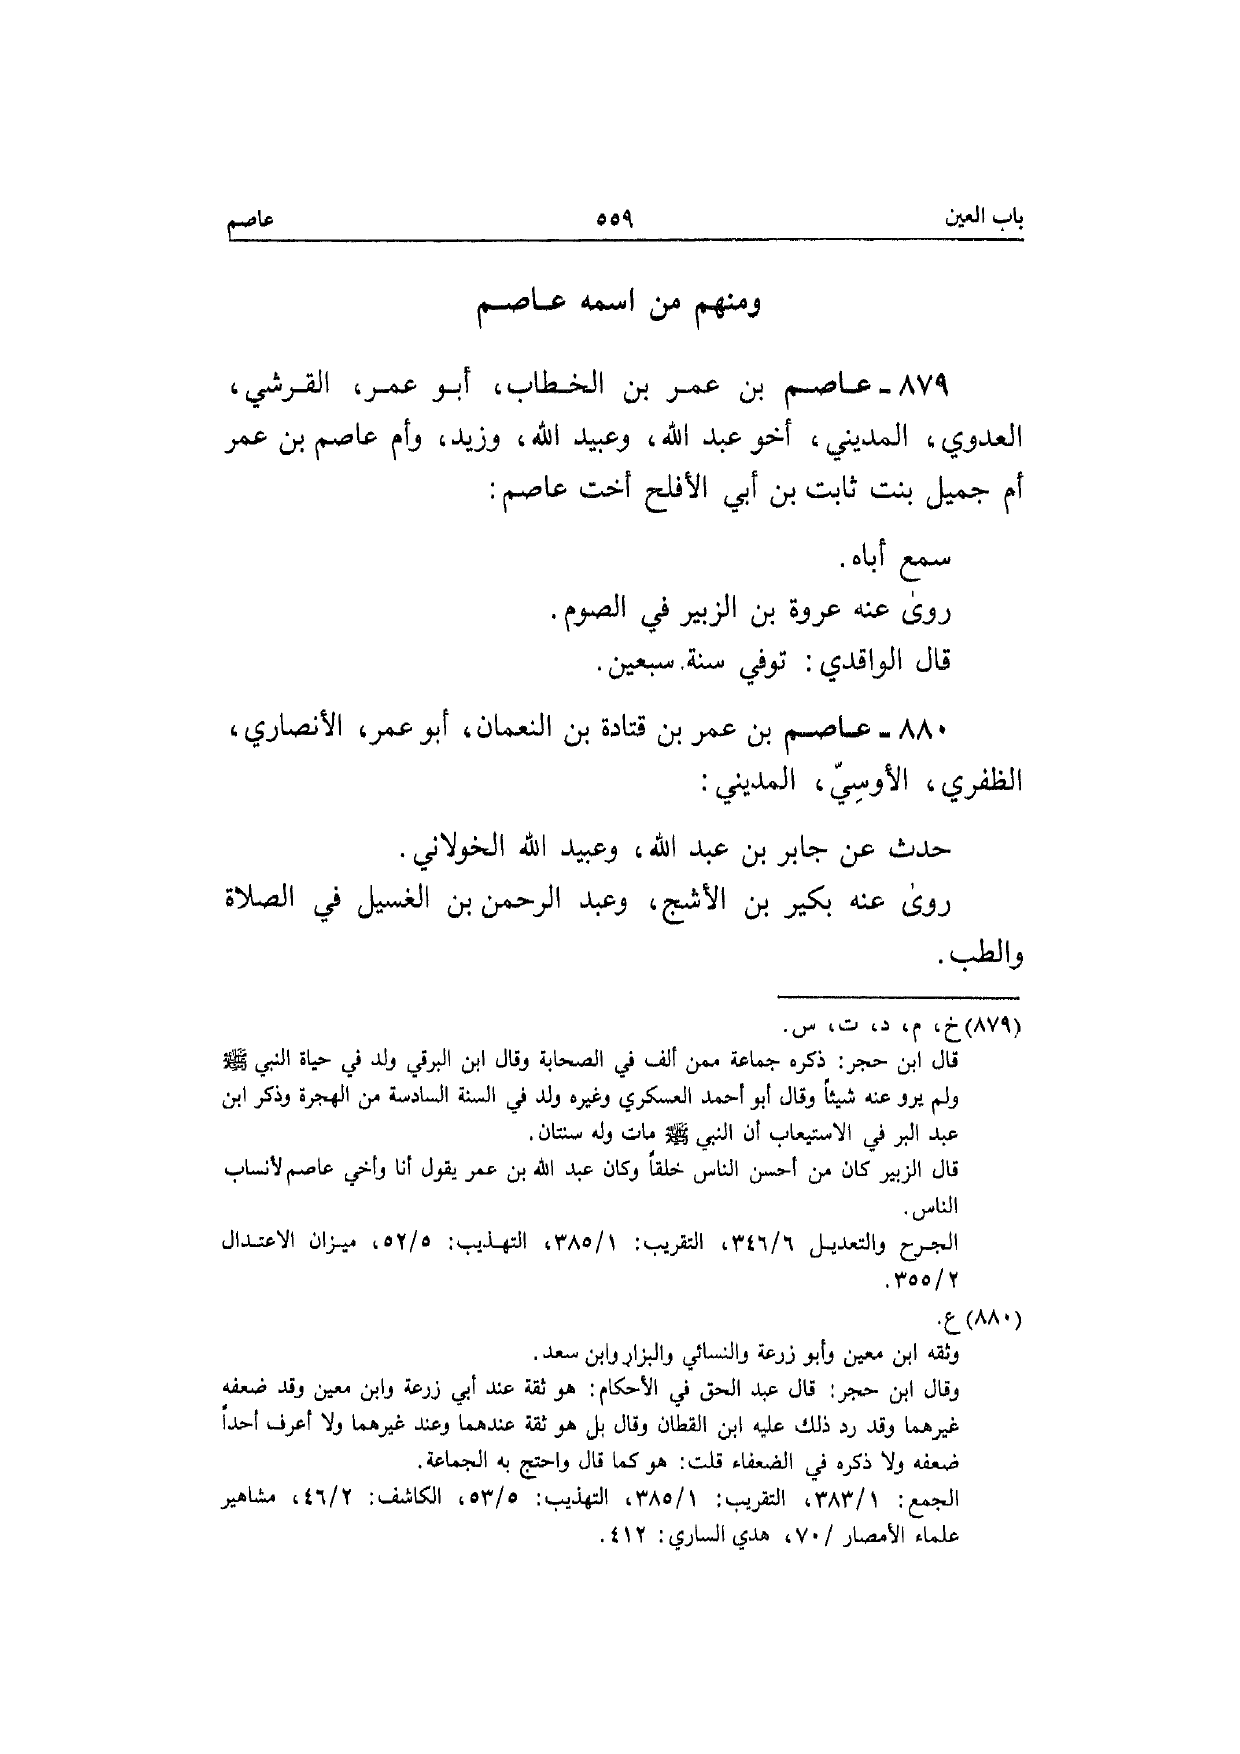 باب العين ٥٥٩ عاصم
ومنهم من اسمه عاصم
٨٧٩ - عاصم بن عمر بن الخطاب، أبو عمر، القرشي،
العدوي، المديني، أخو عبد الله، وعبيد الله، وزيد، وأم عاصم بن عمر
أم جميل بنت ثابت بن أبي الأفلح أخت عاصم:
سمع أباه.
روىٰ عنه عروة بن الزبير في الصوم.
قال الواقدي: توفي سنة سبعين.
٨٨٠ - عاصم بن عمر بن قتادة بن النعمان، أبو عمر، الأنصاري،
الظفري، الأوسِيّ، المديني:
حدث عن جابر بن عبد الله، وعبيد الله الخولاني.
روىٰ عنه بكير بن الأشج، وعبد الرحمن بن الغسيل في الصلاة
والطب.
(٨٧٩) خ، م، د، ت، س.
قال ابن حجر: ذكره جماعة ممن ألف في الصحابة وقال ابن البرقي ولد في حياة النبي ﷺ
ولم يرو عنه شيئاً وقال أبو أحمد العسكري وغيره ولد في السنة السادسة من الهجرة وذكر ابن
عبد البر في الاستيعاب أن النبي ﷺ مات وله سنتان.
قال الزبير كان من أحسن الناس خلقاً وكان عبد الله بن عمر يقول أنا وأخي عاصم لأنساب
الناس.
الجرح والتعديل ٣٤٦/٦، التقريب: ٣٨٥/١، التهذيب: ٥٢/٥، ميزان الاعتدال
٣٥٥/٢.
(٨٨٠) ع.
وثقه ابن معين وأبو زرعة والنسائي والبزار وابن سعد.
وقال ابن حجر: قال عبد الحق في الأحكام: هو ثقة عند أبي زرعة وابن معين وقد ضعفه
غيرهما وقد رد ذلك عليه ابن القطان وقال بل هو ثقة عندهما وعند غيرهما ولا أعرف أحداً
ضعفه ولا ذكره في الضعفاء قلت: هو كما قال واحتج به الجماعة.
الجمع: ٣٨٣/١، التقريب: ٣٨٥/١، التهذيب: ٥٣/٥، الكاشف: ٤٦/٢، مشاهير
علماء الأمصار /٧٠، هدي الساري: ٤١٢.